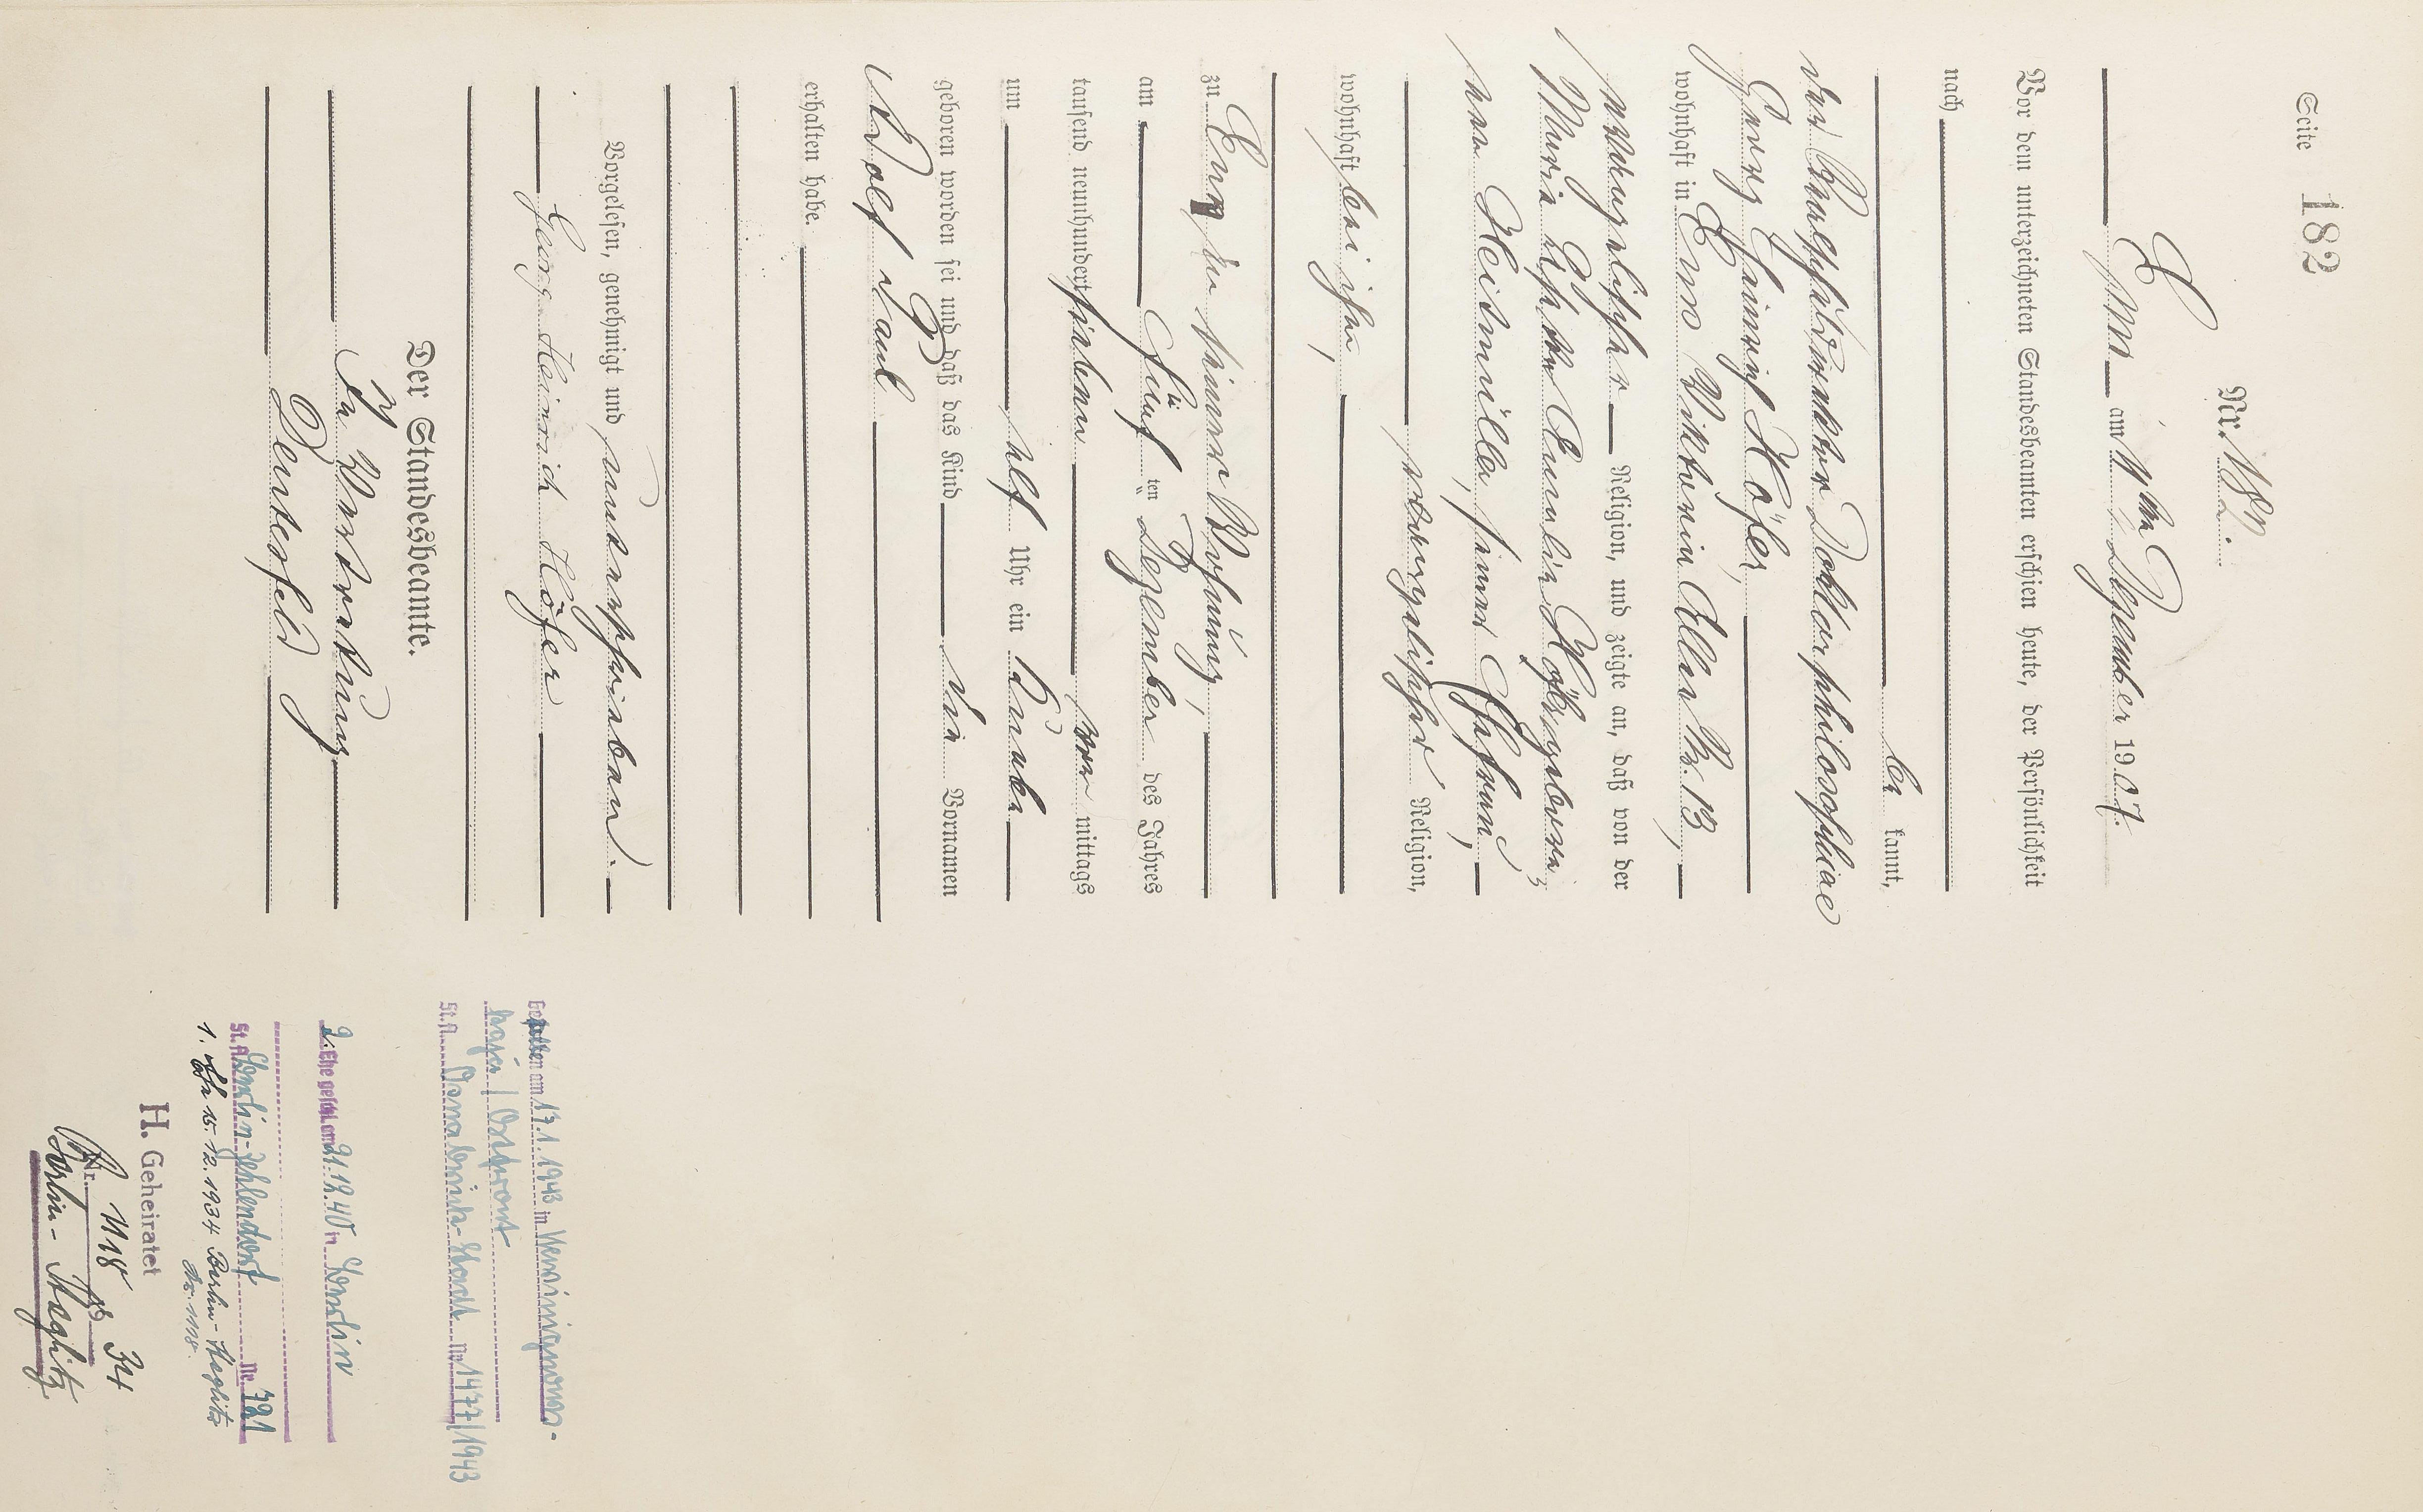 Seite 182
Nr. 182.
Ems am 9ten Dezember 1907.
Vor dem unterzeichneten Standesbeamten erschien heute, der Persönlichkeit
nach
be kannt,
der Realschuldirektor Doktor philosophiae
Georg Heinrich Höfer,
wohnhaft in Ems Viktoria Allee Nr. 13,
evangelischer Religion, und zeigte an, daß von der
Maria Elisabe Emilie Höfer geborenen
Heilmüller, seiner Ehefrau,
evangelischer Religion,
wohnhaft bei ihm,
zu Ems in seiner Wohnung,
am fünften Dezember des Jahres
tausend neunhundert sieben vor mittags
um elf Uhr ein Knabe
geboren worden sei und daß das Kind die Vornamen
Wolf Paul
erhalten habe.
Vorgelesen, genehmigt und unterschrieben.
Georg Heinrich Höfer
Der Standesbeamte.
In Vertretung
Deusfeld
am 17.1.1943 in
St.A. Nr. 1477/1943
2. Ehe geschl. am 21.12.40 in Berlin
St.A. Berlin-Zehlendorf Nr. 721
1. Ehe 15.12.1934 Berlin-Steglitz
Nr. 1118.
H. Geheiratet
Nr. 1118 19 34
Berlin-Steglitz